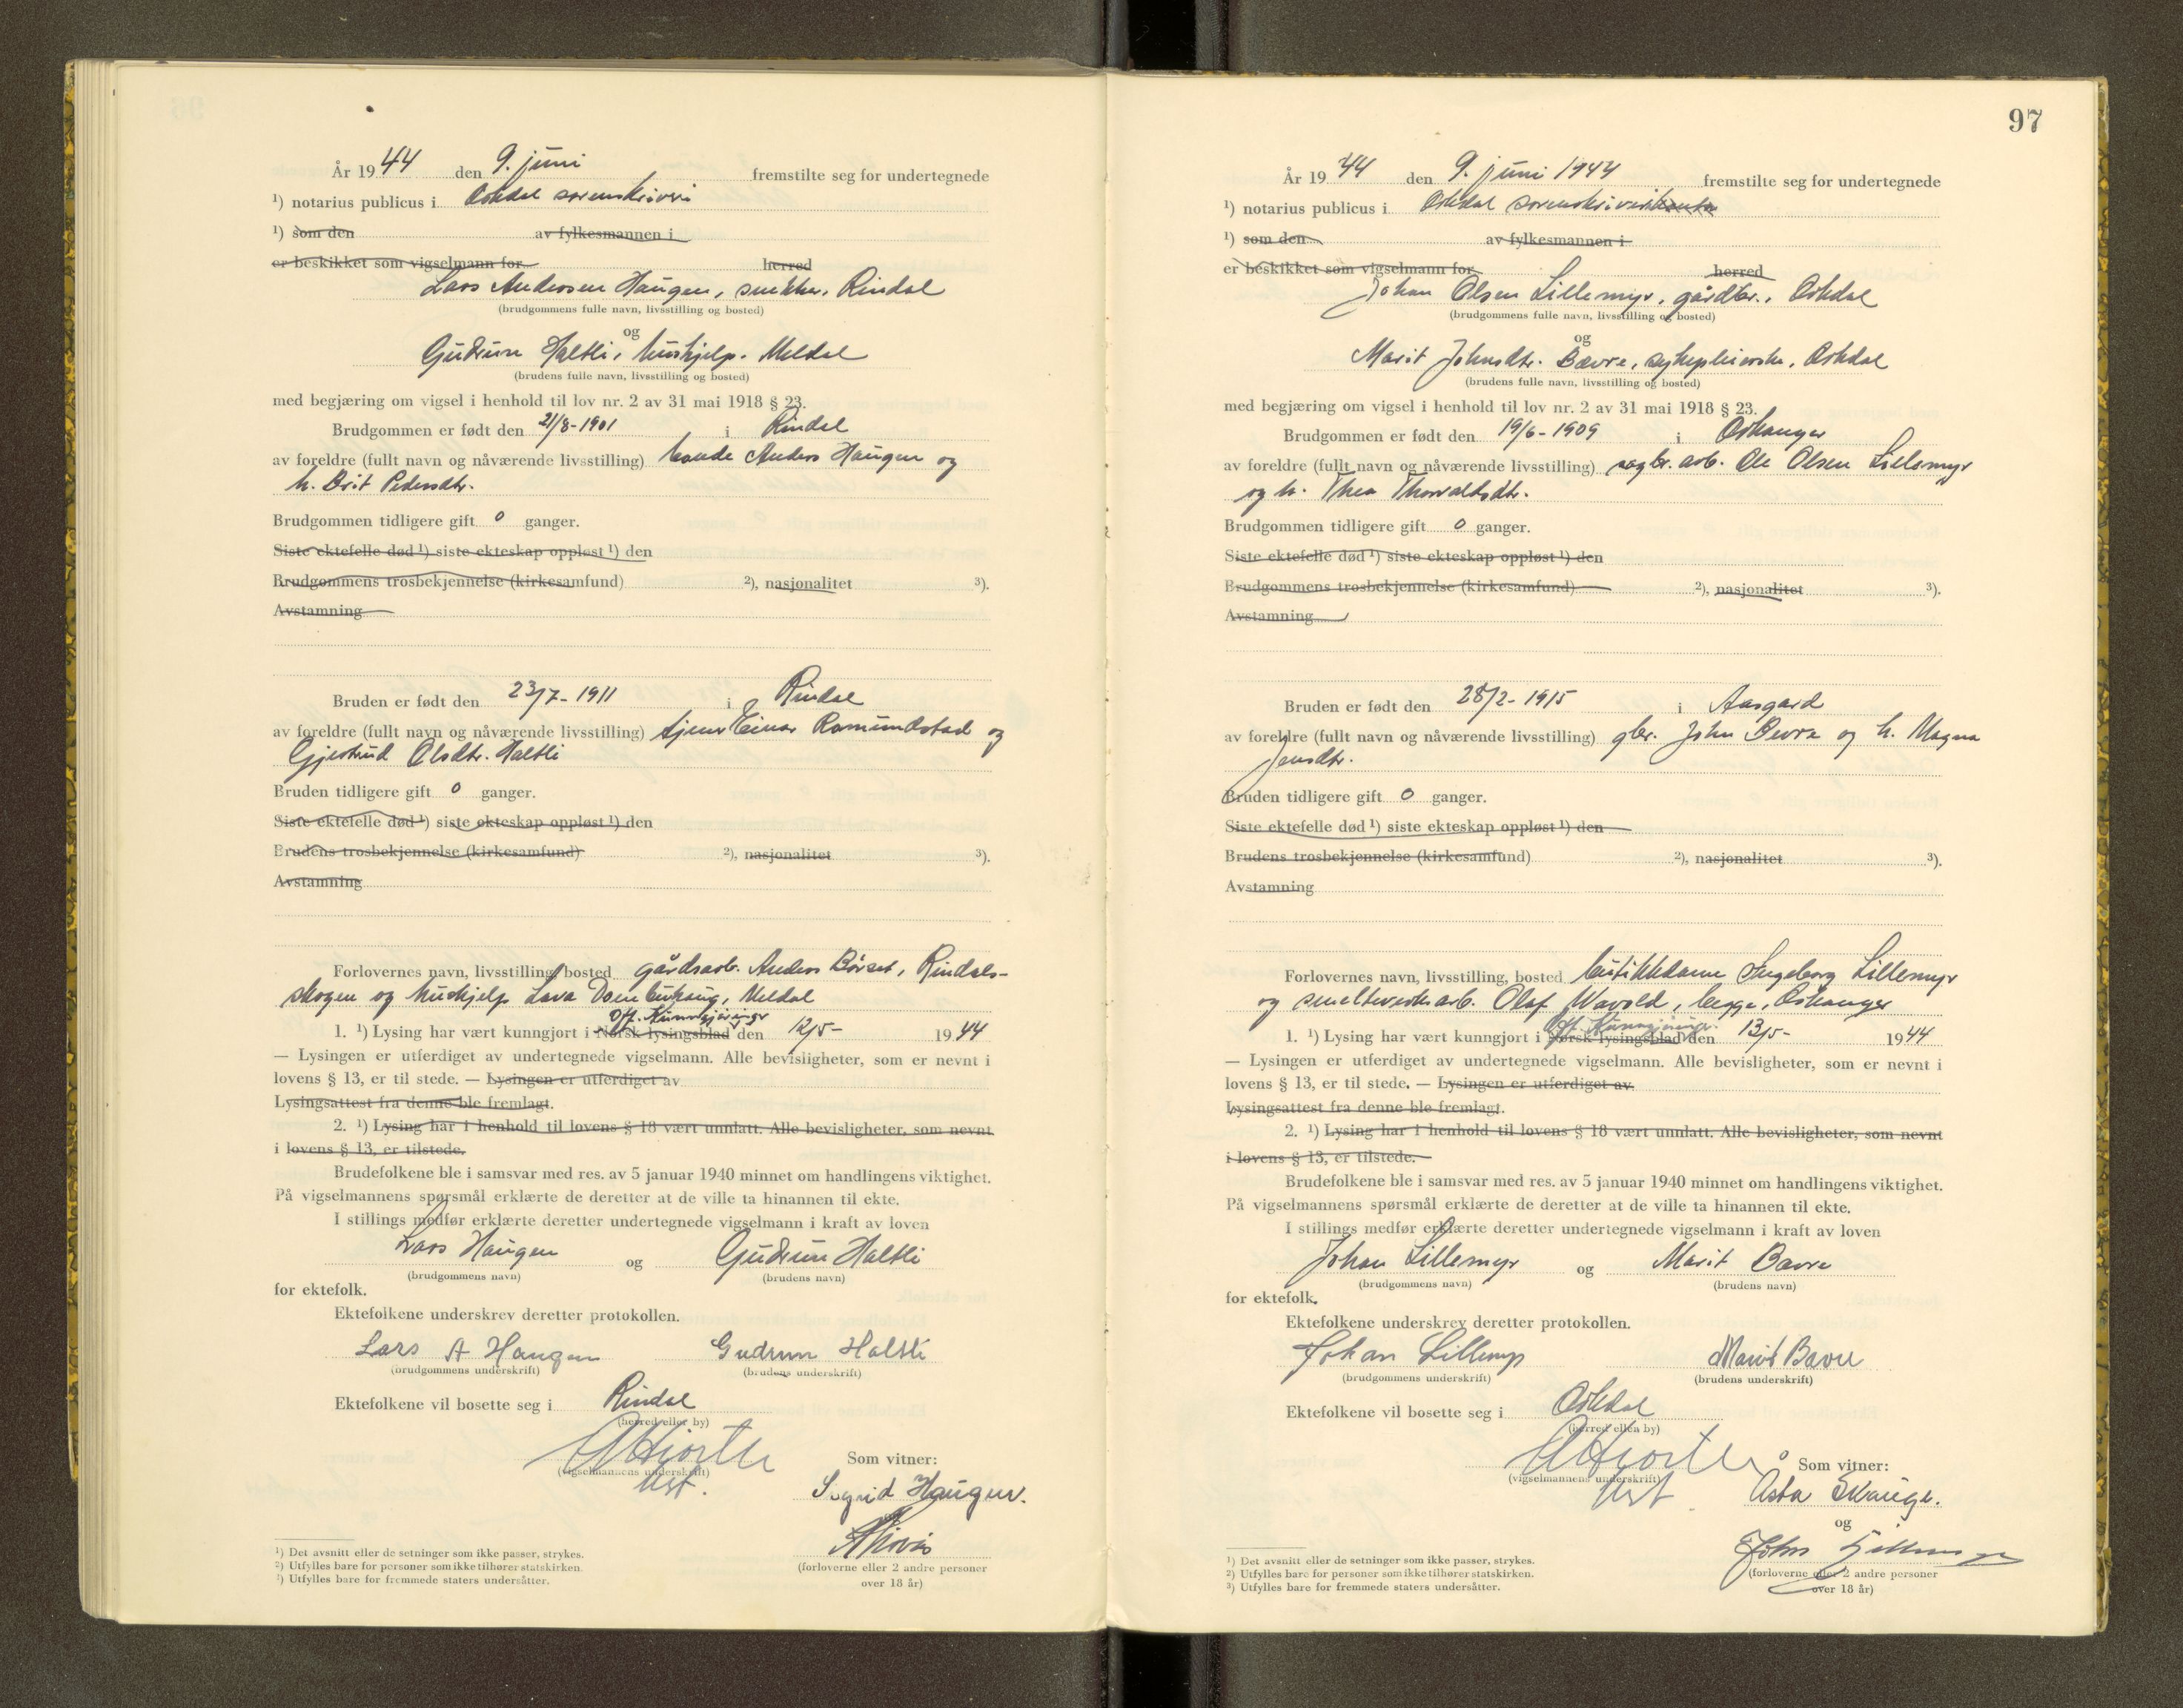 År 1944 den 9. juni fremstilte seg for undertegnede
¹) notarius publicus i Orkdal sorenskriveri
¹) som den av fylkesmannen i
er beskikket som vigselmann for herred
Lars Andersen Haugen, snekker, Rindal
(brudgommens fulle navn, livsstilling og bosted)
og
Gudrun Haltli, hushjelp, Meldal
(brudens fulle navn, livsstilling og bosted)
med begjæring om vigsel i henhold til lov nr. 2 av 31 mai 1918 § 23.
Brudgommen er født den 21/8-1901 i Rindal
av foreldre (fullt navn og nåværende livsstilling) bonde Anders Haugen og
h. Brit Pedersdtr.
Brudgommen tidligere gift 0 ganger.
Siste ektefelle død ¹) siste ekteskap oppløst ¹) den
Brudgommens trosbekjennelse (kirkesamfund) ²), nasjonalitet ³).
Avstamning
Bruden er født den 23/7-1911 i Rindal
av foreldre (fullt navn og nåværende livsstilling) Einar Romundstad og
Gjertrud Olsdtr. Haltli
Bruden tidligere gift 0 ganger.
Siste ektefelle død ¹) siste ekteskap oppløst ¹) den
Brudens trosbekjennelse (kirkesamfund) ²), nasjonalitet ³).
Avstamning
Forlovernes navn, livsstilling, bosted gårdsarb. Anders Børset, Rindals-
skogen og hushjelp Lava, Meldal
Off. Kunngjøringer
1. ¹) Lysing har vært kunngjort i Norsk lysingsblad den 12/5- 1944
— Lysingen er utferdiget av undertegnede vigselmann. Alle bevisligheter, som er nevnt i
lovens § 13, er til stede. — Lysingen er utferdiget av
Lysingsattest fra denne ble fremlagt.
2. ¹) Lysing har i henhold til lovens § 18 vært unnlatt. Alle bevisligheter, som nevnt
i lovens § 13, er tilstede.
Brudefolkene ble i samsvar med res. av 5 januar 1940 minnet om handlingens viktighet.
På vigselmannens spørsmål erklærte de deretter at de ville ta hinannen til ekte.
I stillings medfør erklærte deretter undertegnede vigselmann i kraft av loven
Lars Haugen og Gudrun Haltli
(brudgommens navn) (brudens navn)
for ektefolk.
Ektefolkene underskrev deretter protokollen.
Lars A Haugen Gudrun Haltli
(brudgommens underskrift) (brudens underskrift)
Ektefolkene vil bosette seg i Rindal
(herred eller by)
AHjorth
(vigselmannens underskrift)
Som vitner:
Sigrid Haugen.
¹) Det avsnitt eller de setninger som ikke passer, strykes.
²) Utfylles bare for personer som ikke tilhører statskirken.
³) Utfylles bare for fremmede staters undersåtter.
(forloverne eller 2 andre personer
over 18 år)
97
År 1944 den 9. juni 1944 fremstilte seg for undertegnede
¹) notarius publicus i Orkdal sorenskriverikontor
¹) som den av fylkesmannen i
er beskikket som vigselmann for herred
Johan Olsen Lillemyr, gårdbr., Orkdal
(brudgommens fulle navn, livsstilling og bosted)
og
Marit Johnsdtr. Bævre, sykepleierske, Orkdal
(brudens fulle navn, livsstilling og bosted)
med begjæring om vigsel i henhold til lov nr. 2 av 31 mai 1918 § 23.
Brudgommen er født den 19/6-1909 i Orkanger
av foreldre (fullt navn og nåværende livsstilling) sagbr. arb. Ole Olsen Lillemyr
og h. Thea Thorvaldsdtr.
Brudgommen tidligere gift 0 ganger.
Siste ektefelle død ¹) siste ekteskap oppløst ¹) den
Brudgommens trosbekjennelse (kirkesamfund) ²), nasjonalitet ³).
Avstamning
Bruden er født den 28/2-1915 i Aasgard
av foreldre (fullt navn og nåværende livsstilling) gbr. John Bævre og h. Magna
Jensdtr.
Bruden tidligere gift 0 ganger.
Siste ektefelle død ¹) siste ekteskap oppløst ¹) den
Brudens trosbekjennelse (kirkesamfund) ²), nasjonalitet ³).
Avstamning
Forlovernes navn, livsstilling, bosted butikkdame Ingeborg Lillemyr
og smelteverksarb. Olaf Wavold, begge, Orkanger
Off. Kunngjøringer
1. ¹) Lysing har vært kunngjort i Norsk lysingsblad den 13/5- 1944
— Lysingen er utferdiget av undertegnede vigselmann. Alle bevisligheter, som er nevnt i
lovens § 13, er til stede. — Lysingen er utferdiget av
Lysingsattest fra denne ble fremlagt.
2. ¹) Lysing har i henhold til lovens § 18 vært unnlatt. Alle bevisligheter, som nevnt
i lovens § 13, er tilstede.
Brudefolkene ble i samsvar med res. av 5 januar 1940 minnet om handlingens viktighet.
På vigselmannens spørsmål erklærte de deretter at de ville ta hinannen til ekte.
I stillings medfør erklærte deretter undertegnede vigselmann i kraft av loven
Johan Lillemyr og Marit Bævre
(brudgommens navn) (brudens navn)
for ektefolk.
Ektefolkene underskrev deretter protokollen.
Johan Lillemyr Marit Bævre
(brudgommens underskrift) (brudens underskrift)
Ektefolkene vil bosette seg i Orkdal
(herred eller by)
AHjorth
(vigselmannens underskrift)
Som vitner:
Åsta Skauge.
og
John
¹) Det avsnitt eller de setninger som ikke passer, strykes.
²) Utfylles bare for personer som ikke tilhører statskirken.
³) Utfylles bare for fremmede staters undersåtter.
(forloverne eller 2 andre personer
over 18 år)